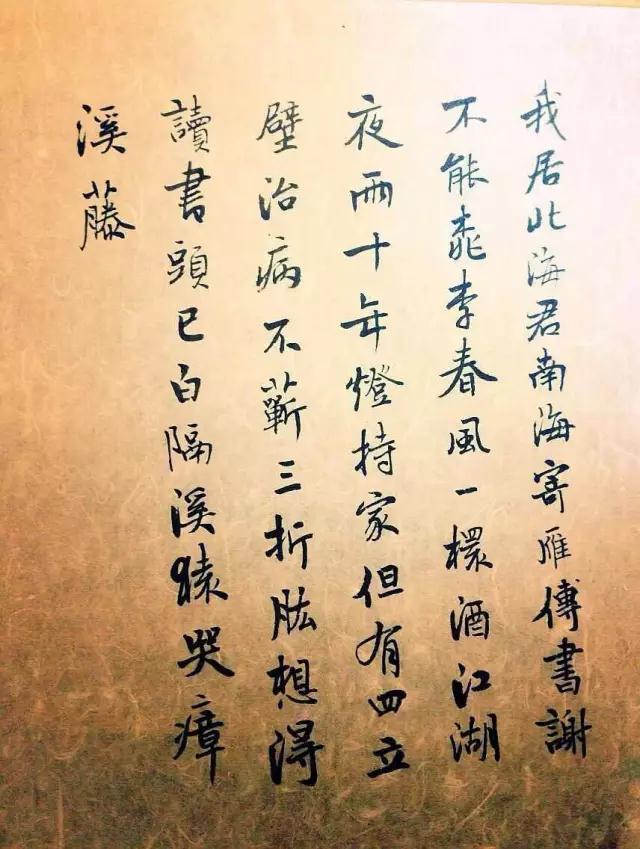 我居北海君南海寄雁傳書謝
不能桃李春風一杯酒江湖
夜雨十年燈持家但有四立
壁治病不蘄三折肱想得
讀書頭已白隔溪猿哭瘴
溪藤